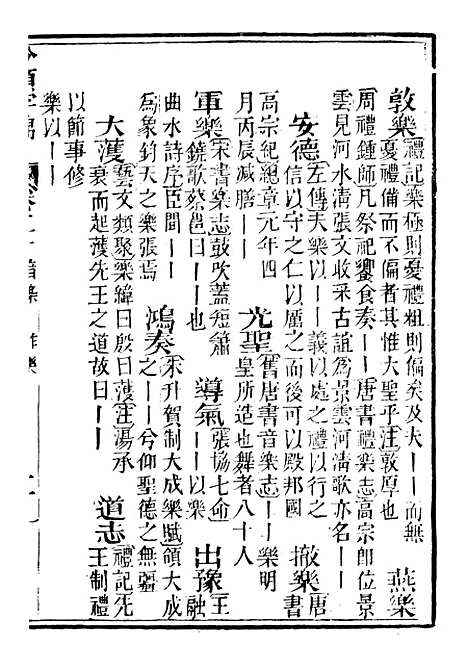 敦樂禮記樂極則憂禮粗則偏矣及夫｜｜而無
憂禮備而不偏者其惟大聖乎注敦厚也燕樂
周禮鍾師凡祭祀饗食奏｜｜唐書禮樂志高宗卽位景
雲見河水清張文收采古誼爲景雲河清歌亦名｜｜
安德左傳夫樂以｜｜義以處之禮以行之
信以守之仁以厲之而後可以殿邦國撤樂唐
書
高宗紀總章元年四
月丙辰減膳｜｜光聖舊唐書音樂志｜｜樂明
皇所造也舞者八十人
軍樂宋書樂志鼓吹蓋短簫
鐃歌蔡邕曰｜｜也導氣張協七命
｜｜以樂出豫王
融
曲水詩序臣聞｜｜
爲象鈞天之樂張焉鴻奏宋升賀制大成樂賦頌大成
之｜｜兮仰聖德之無疆
大濩藝文類聚樂緯曰殷曰濩注湯承
衰而起濩先王之道故曰｜｜道志禮記先
王制禮
以節事修
樂以｜｜